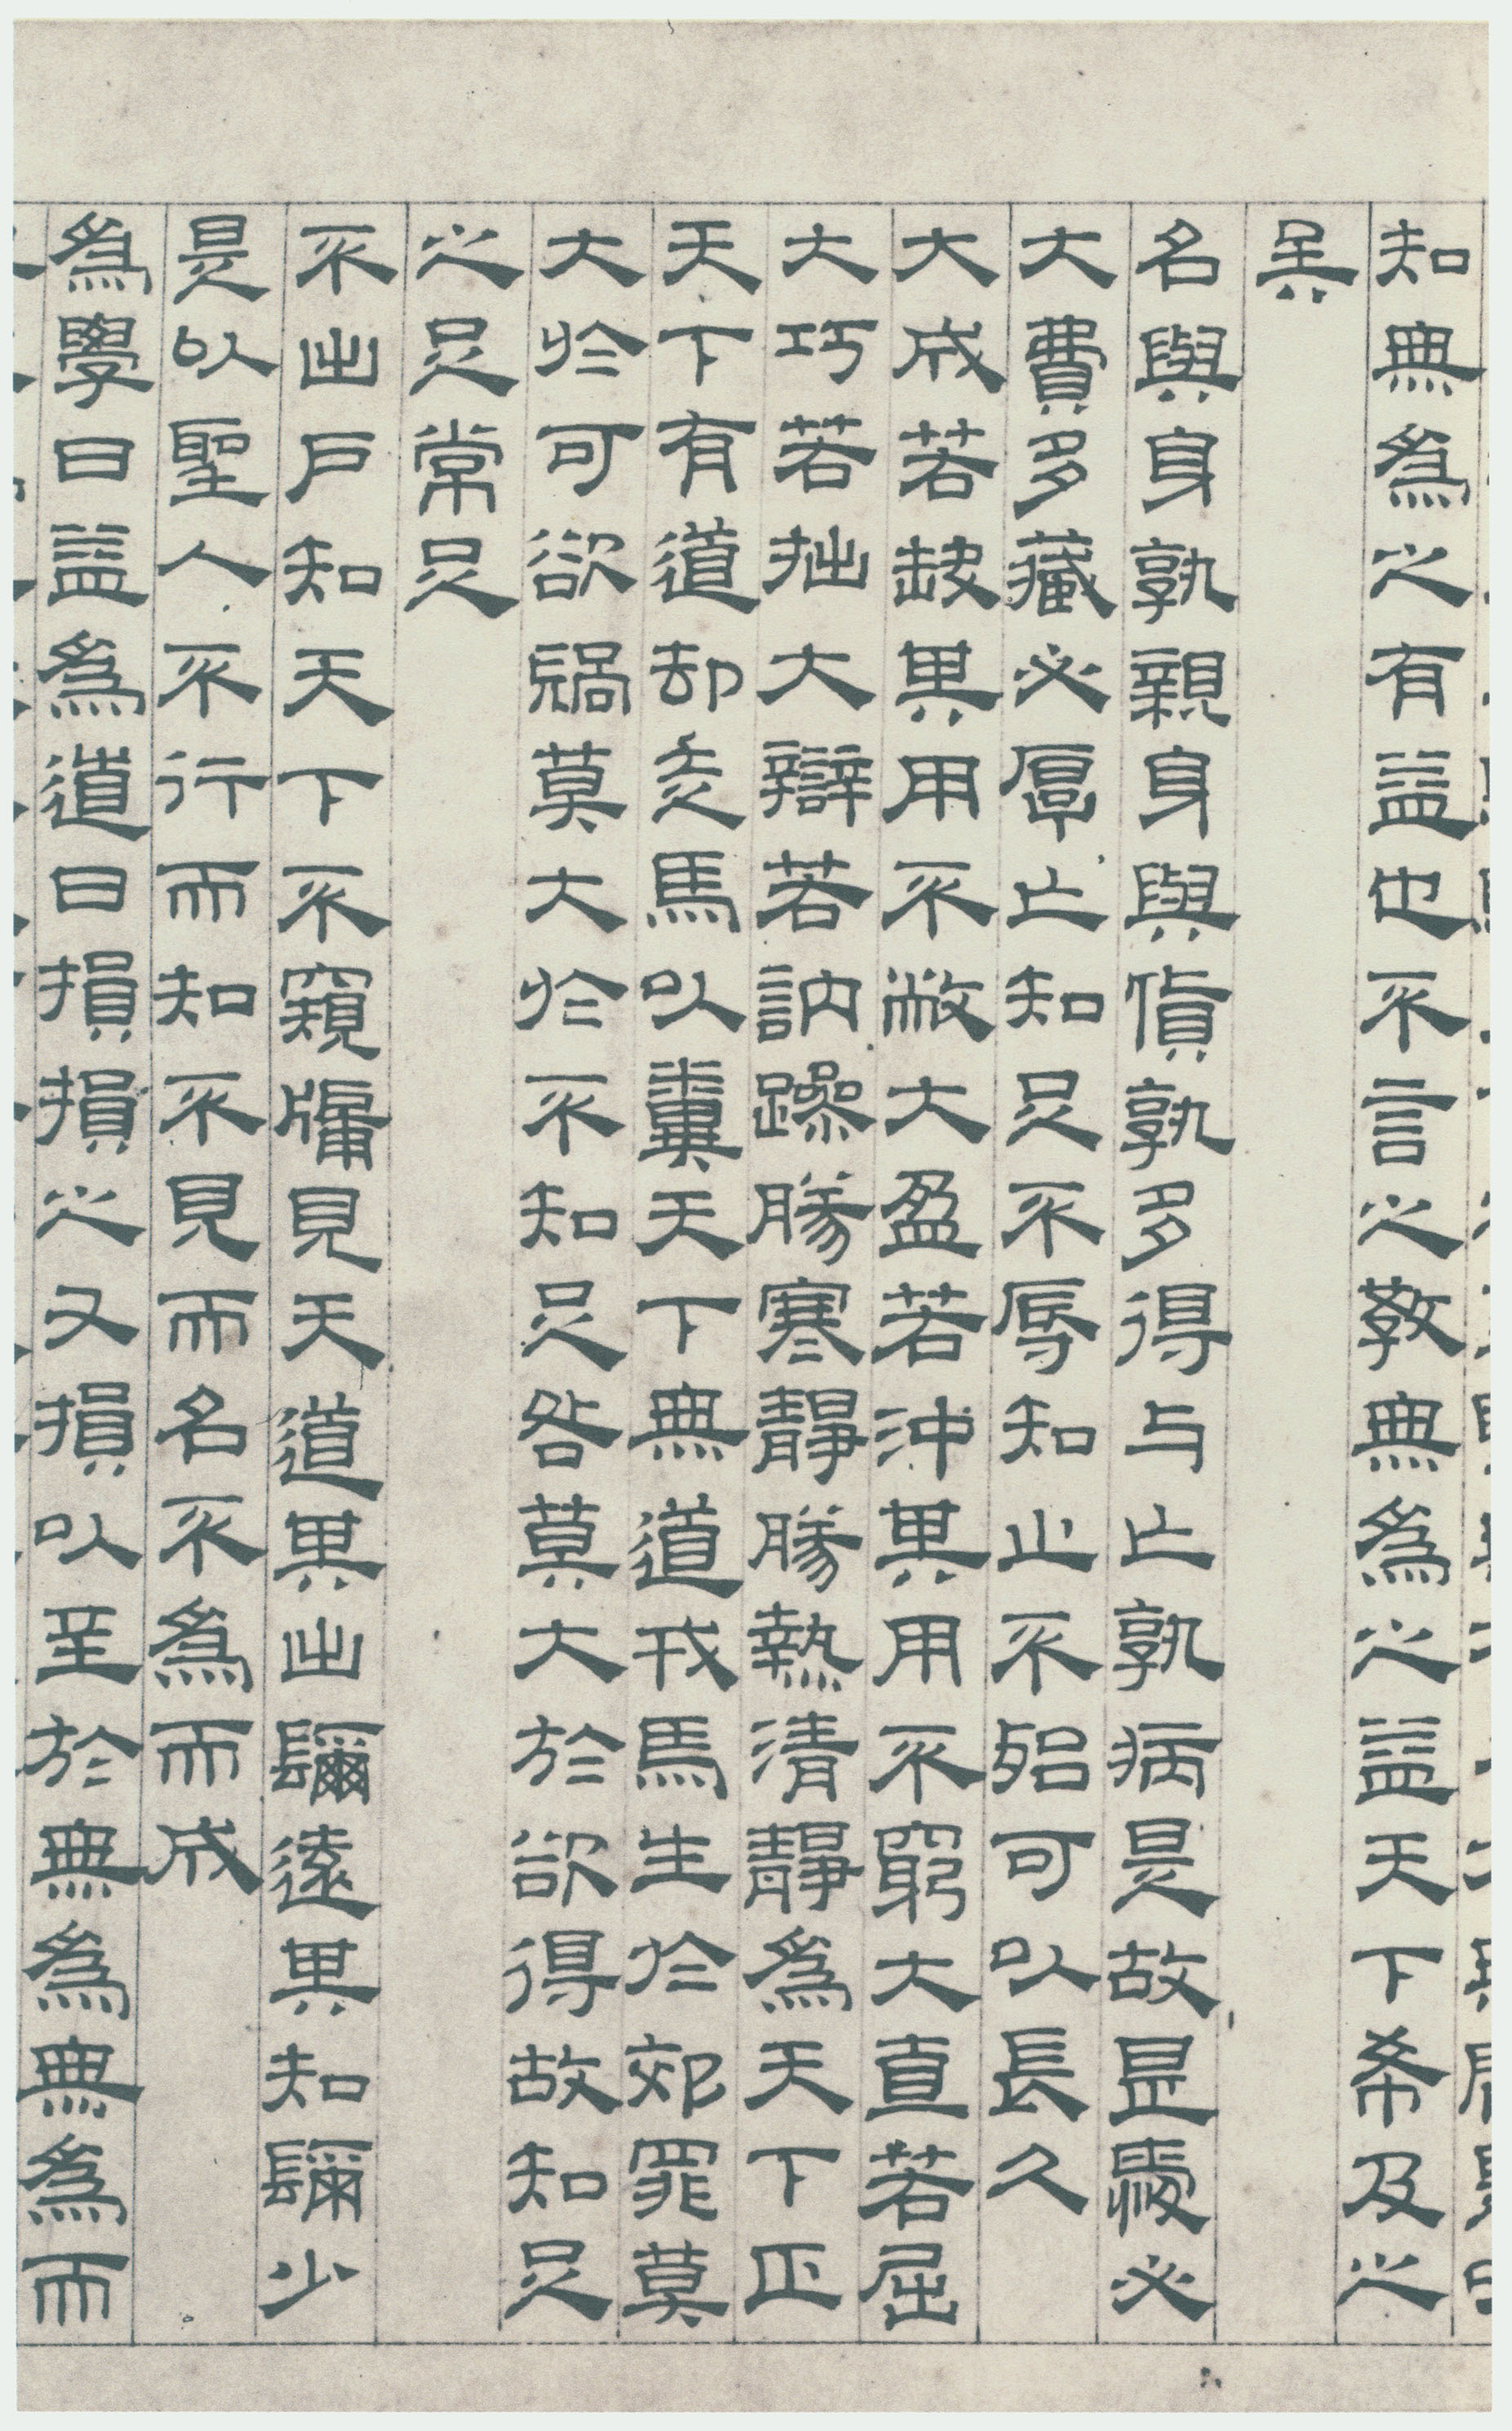 知無爲之有益也不言之教無爲之益天下希及之
矣
名與身孰親身與貨孰多得与亡孰病是故甚愛必
大費多藏必厚亡知足不辱知止不殆可以長久
大成若缺其用不敝大盈若沖其用不窮大直若屈
大巧若拙大辯若訥躁勝寒靜勝熱清靜爲天下正
天下有道却走馬以糞天下無道戎馬生於郊罪莫
大於可欲禍莫大於不知足咎莫大於欲得故知足
之足常足
不出戶知天下不窺牖見天道其出彌遠其知彌少
是以聖人不行而知不見而名不爲而成
爲學日益爲道日損損之又損以至於無爲無爲而